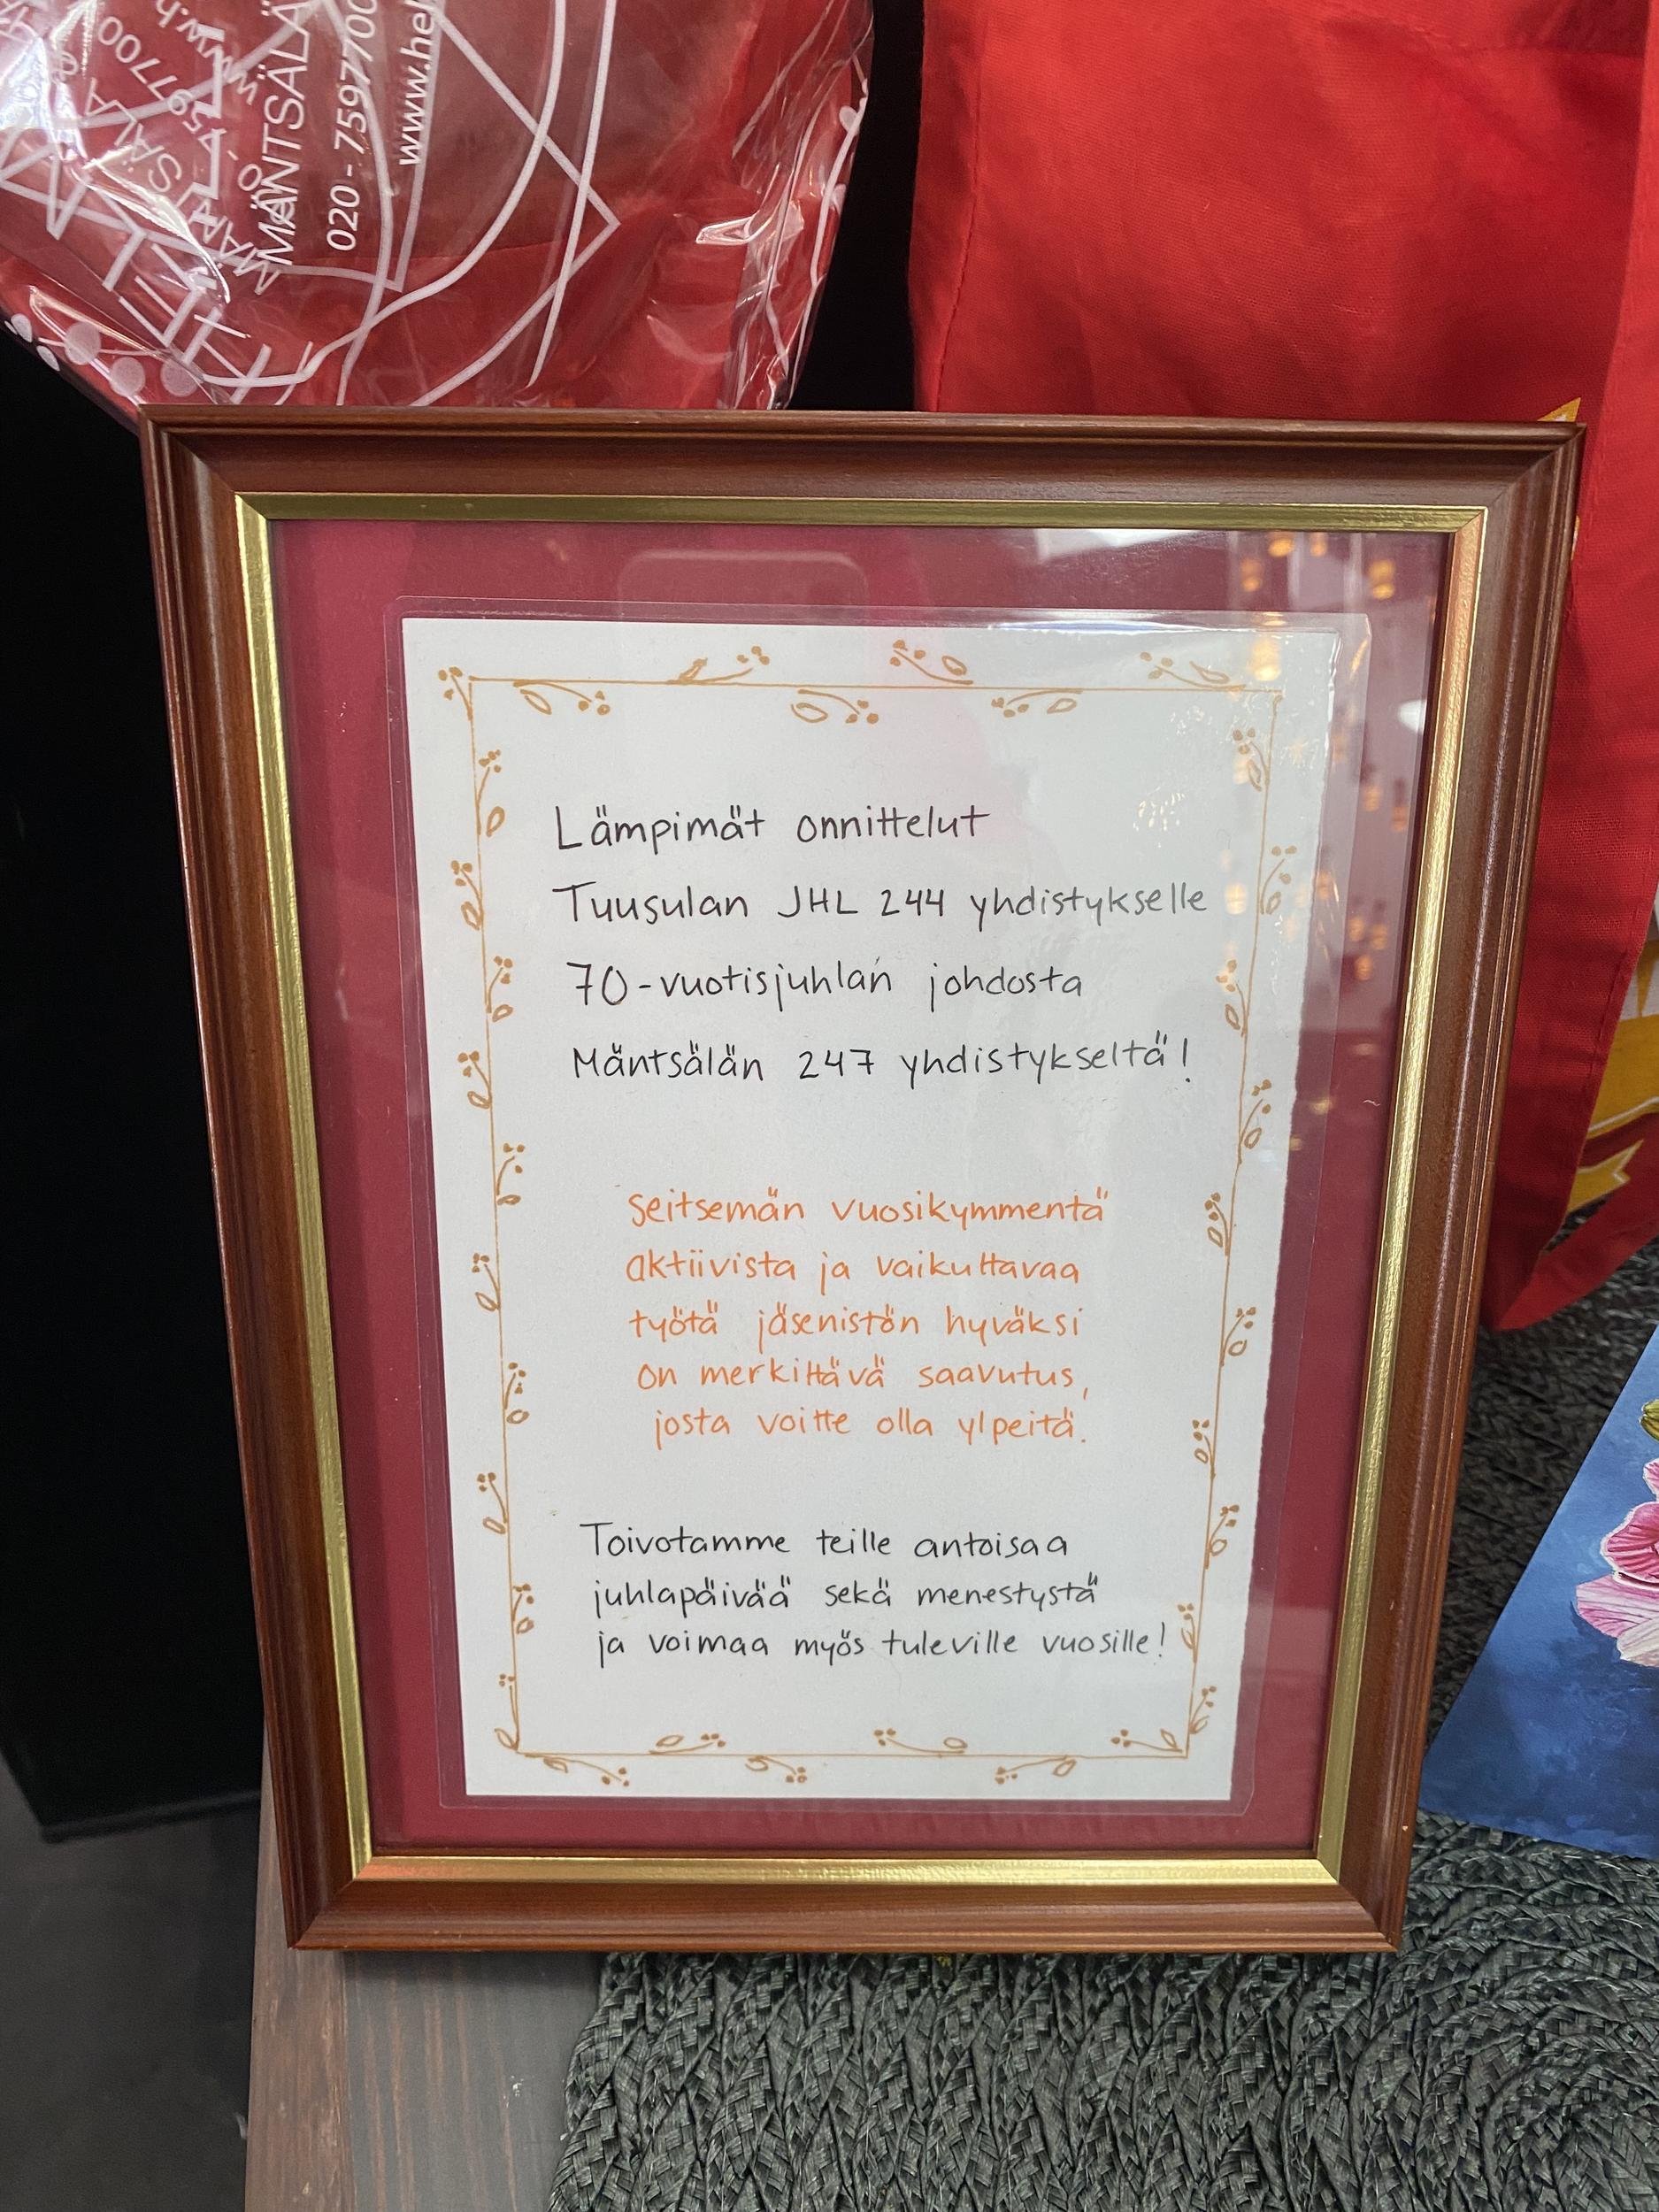 MÄNTSÄLÄ
020 - 7597700
www.hel
Lämpimät onnittelut
Tuusulan JHL 244 yhdistykselle
70-vuotisjuhlan johdosta
Mäntsälän 247 yhdistykseltä!
Seitsemän vuosikymmentä
aktiivista ja vaikuttavaa
työtä jäsenistön hyväksi
on merkittävä saavutus,
josta voitte olla ylpeitä.
Toivotamme teille antoisaa
juhlapäivää sekä menestystä
ja voimaa myös tuleville vuosille!